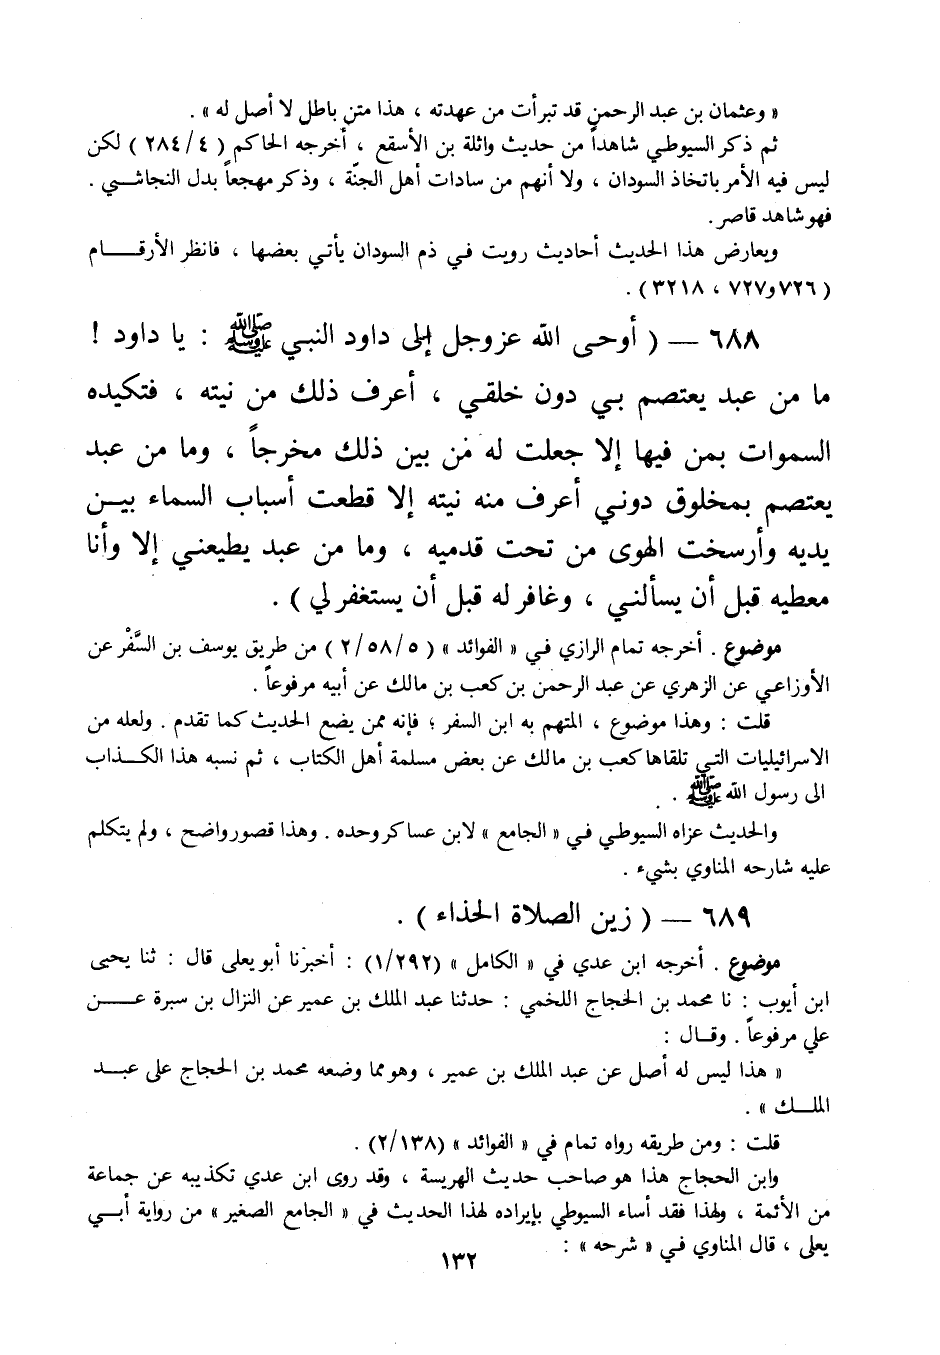 « وعثمان بن عبد الرحمن قد تبرأت من عهدته ، هذا متن باطل لا أصل له » .
ثم ذكر السيوطي شاهداً من حديث واثلة بن الأسقع ، أخرجه الحاكم ( ٤/ ٢٨٤ ) لكن
ليس فيه الأمر باتخاذ السودان ، ولا أنهم من سادات أهل الجنّة ، وذكر مهجعاً بدل النجاشي .
فهو شاهد قاصر.
ويعارض هذا الحديث أحاديث رويت في ذم السودان يأتي بعضها ، فانظر الأرقام
( ٧٢٦ و٧٢٧ ، ٣٢١٨ ) .
٦٨٨ — ( أوحى الله عز وجل إلى داود النبي ﷺ : يا داود !
ما من عبد يعتصم بي دون خلقي ، أعرف ذلك من نيته ، فتكيده
السموات بمن فيها إلا جعلت له من بين ذلك مخرجاً ، وما من عبد
يعتصم بمخلوق دوني أعرف منه نيته إلا قطعت أسباب السماء بين
يديه وأرسخت الهوى من تحت قدميه ، وما من عبد يطيعني إلا وأنا
معطيه قبل أن يسألني ، وغافر له قبل أن يستغفر لي ) .
موضوع . أخرجه تمام الرازي في « الفوائد » ( ٥ /٥٨ /٢ ) من طريق يوسف بن السَّفْر عن
الأوزاعي عن الزهري عن عبد الرحمن بن كعب بن مالك عن أبيه مرفوعاً .
قلت : وهذا موضوع ، المتهم به ابن السفر ؛ فإنه ممن يضع الحديث كما تقدم . ولعله من
الاسرائيليات التي تلقاها كعب بن مالك عن بعض مسلمة أهل الكتاب ، ثم نسبه هذا الكذاب
الى رسول الله ﷺ .
والحديث عزاه السيوطي في « الجامع » لابن عساكر وحده . وهذا قصور واضح ، ولم يتكلم
عليه شارحه المناوي بشيء .
٦٨٩ — ( زين الصلاة الحذاء ) .
موضوع . أخرجه ابن عدي في « الكامل » (١/٢٩٢) : أخبرنا أبو يعلى قال : ثنا يحيى
ابن أيوب : نا محمد بن الحجاج اللخمي : حدثنا عبد الملك بن عمير عن النزال بن سبرة عن
علي مرفوعاً . وقال :
« هذا ليس له أصل عن عبد الملك بن عمير ، وهو مما وضعه محمد بن الحجاج على عبد
الملك » .
قلت : ومن طريقه رواه تمام في « الفوائد » (٢/١٣٨) .
وابن الحجاج هذا هو صاحب حديث الهريسة ، وقد روى ابن عدي تكذيبه عن جماعة
من الأئمة ، ولهذا فقد أساء السيوطي بإيراده لهذا الحديث في « الجامع الصغير » من رواية أبي
يعلى ، قال المناوي في « شرحه » :
١٣٢